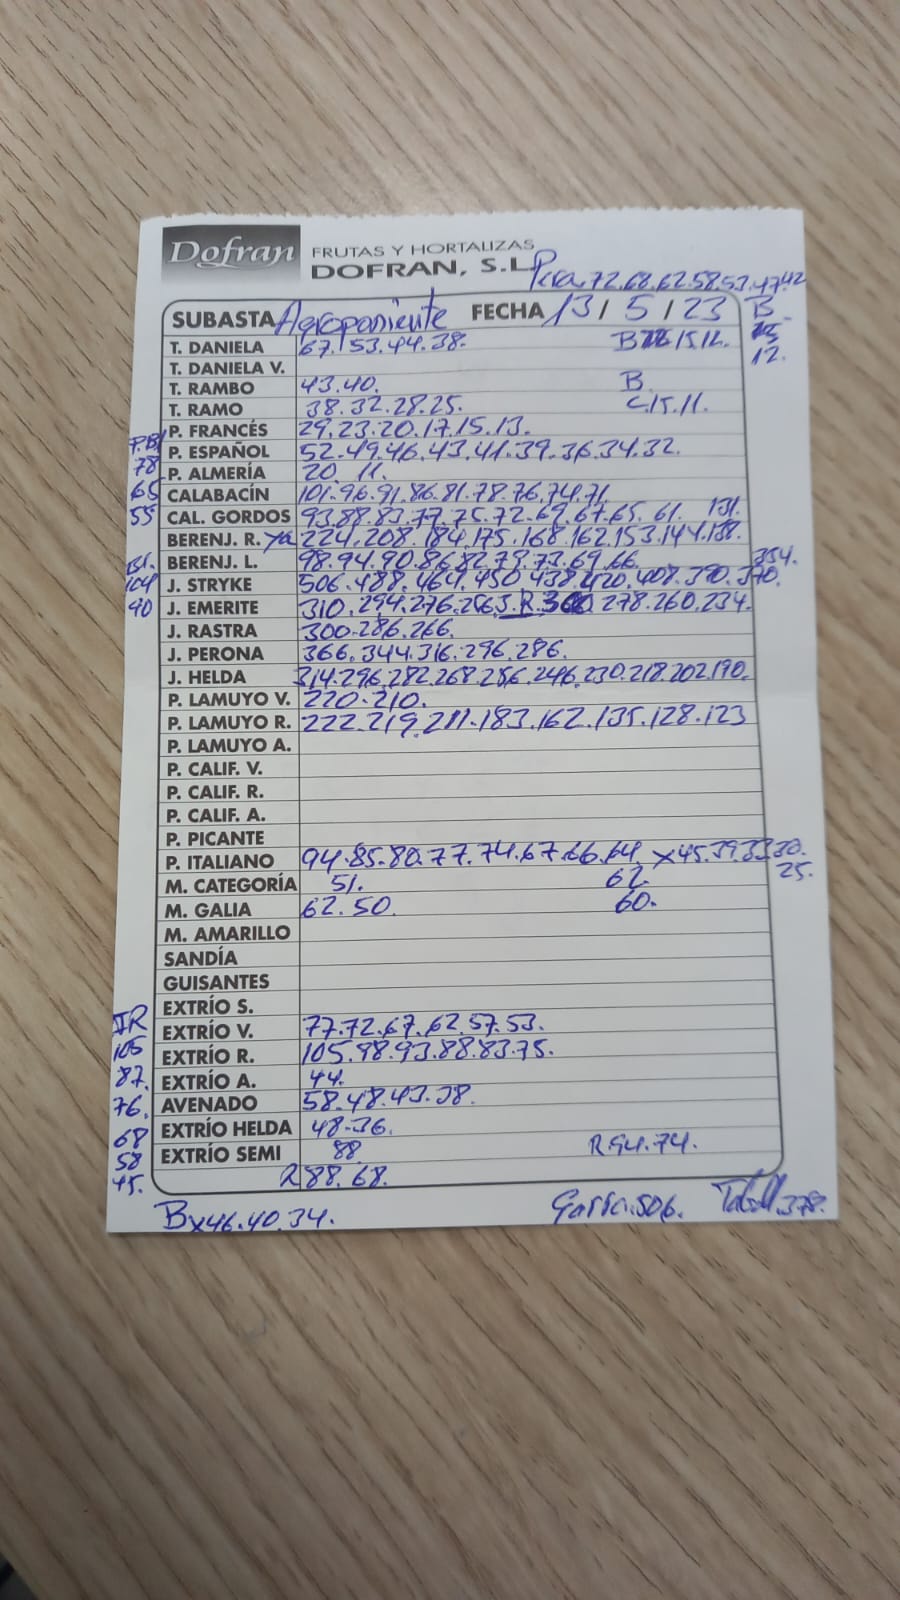 Dofran FRUTAS Y HORTALIZAS
DOFRAN, S.L. Pera.72.68.62.58.53.47.42
SUBASTA Agroponiente FECHA 13/5/23 B
T. DANIELA 67.53.44.38. B 15.12.
12.
T. DANIELA V.
T. RAMBO 43.40. B.
T. RAMO 38.32.28.25. C.15.11.
P. FRANCÉS 29.23.20.17.15.13.
P. ESPAÑOL 52.49.46.43.41.39.36.34.32.
78 P. ALMERÍA 20. 11.
65 CALABACÍN 101.96.91.86.81.78.76.74.71.
55 CAL. GORDOS 93.88.83.77.75.72.69.67.65.61. 131.
BERENJ. R. ya 224.208.184.175.168.162.153.144.138.
BERENJ. L. 98.94.90.86.82.79.73.69.66. 354.
104 J. STRYKE 506.488.464.450.438.420.408.390.370.
90 J. EMERITE 310.294.276.256 R.300.278.260.234.
J. RASTRA 300.286.266.
J. PERONA 366.344.316.296.286.
J. HELDA 314.296.282.268.256.246.230.218.202.190.
P. LAMUYO V. 220.210.
P. LAMUYO R. 222.219.211.183.162.135.128.123
P. LAMUYO A.
P. CALIF. V.
P. CALIF. R.
P. CALIF. A.
P. PICANTE
P. ITALIANO 94.85.80.77.74.67.66.64. x45.39.33.30.
25.
M. CATEGORÍA 51. 62.
M. GALIA 62.50. 60.
M. AMARILLO
SANDÍA
GUISANTES
EXTRÍO S.
IR EXTRÍO V. 77.72.67.62.57.53.
105 EXTRÍO R. 105.98.93.88.83.75.
87. EXTRÍO A. 44.
76. AVENADO 58.48.43.38.
68 EXTRÍO HELDA 48.36.
58 EXTRÍO SEMI 88 R94.74.
45. R 88.68.
Bx46.40.34. Garra.506. 378.